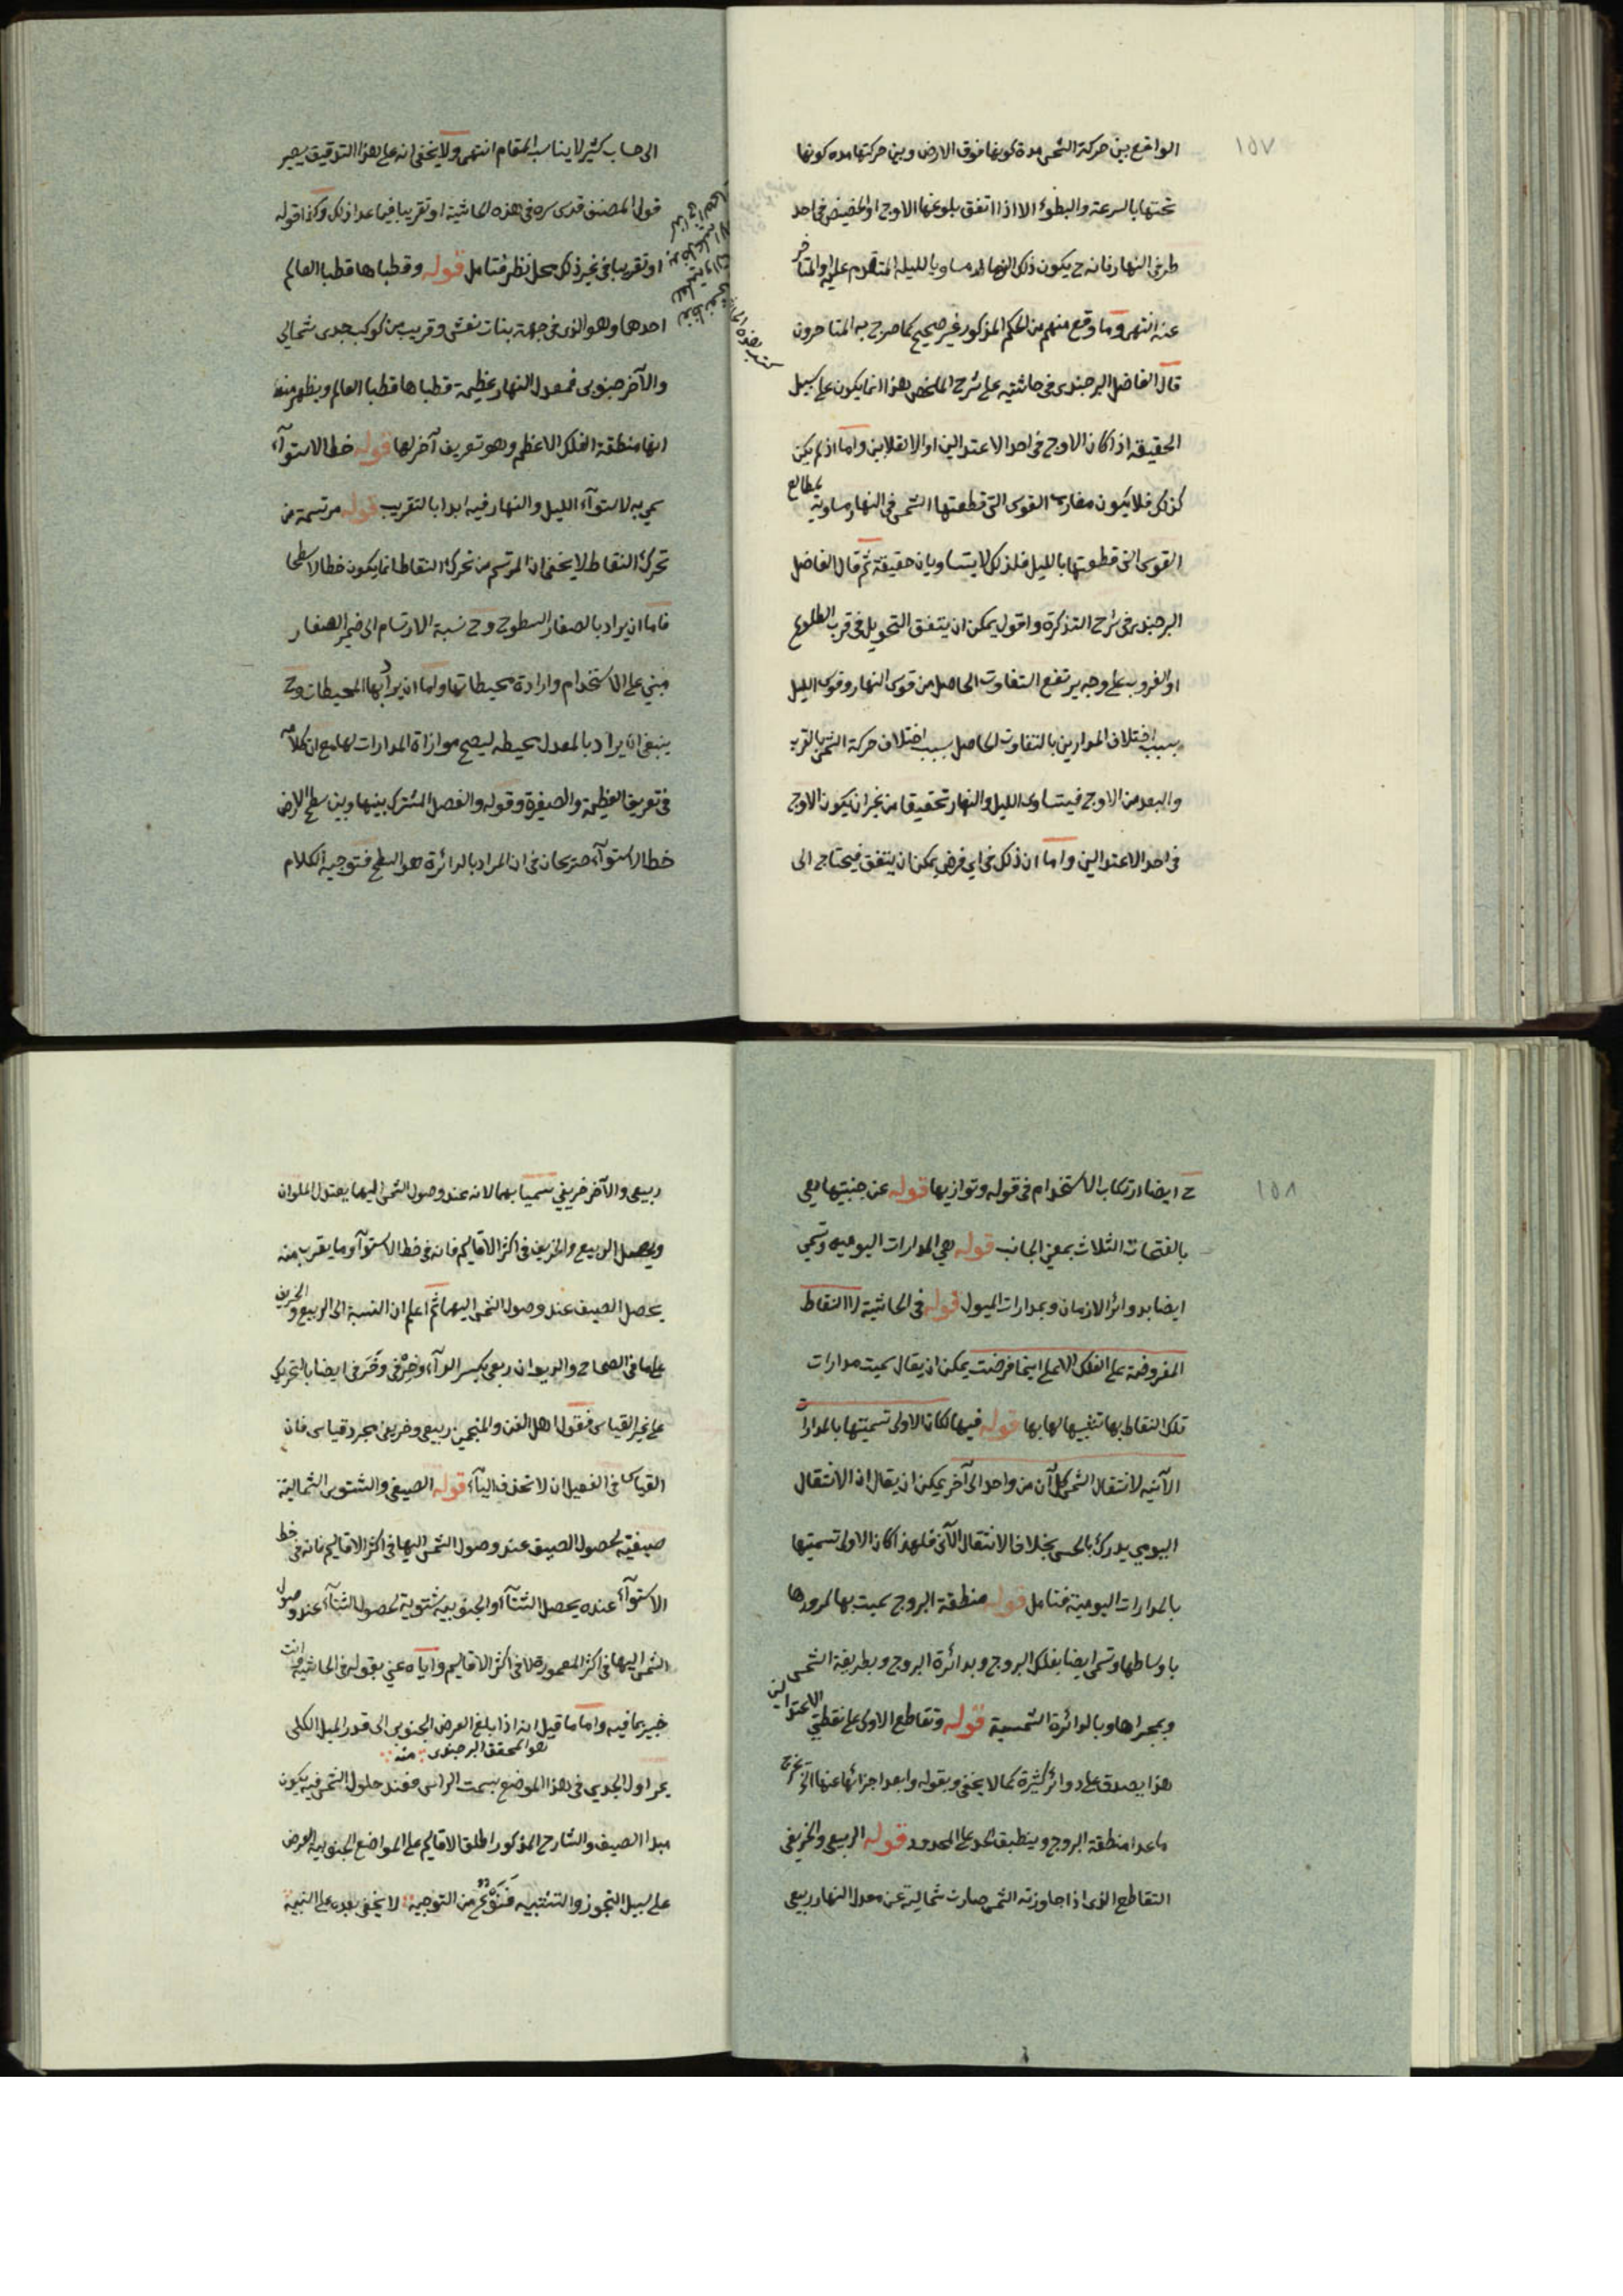 ١٥٧
الواقع بين حركة الشمس مدة كونها فوق الارض وبين حركتها مدة كونها
تحتها بالسرعة والبطوء الا اذا اتفق بلوغها الاوج او الحضيض في احد
طرفي النهار فانه ح يكون ذلك النهار مساويا لليلة المتقدم عليه او المتاخر
عنه انتهى وما وقع منهم من الحكم المذكور غير صحيح كما صرح به المتاخرون
قال الفاضل البرجندى في حاشيته على شرح الملخص هذا انما يكون على سبيل
الحقيقة اذا كان الاوج في احد الاعتدالين او الانقلابين واما اذا لم يكن
كذلك فلا يكون مغارب القوس التى قطعتها الشمس في النهار مساوية لمطالع
القوس التى قطعتها بالليل فلذلك لا يتساويان حقيقة ثم قال الفاضل
البرجندى في شرح التذكرة واقول يمكن ان يتفق التحويل في قرب الطلوع
او الغروب على وجه يرتفع التفاوت الحاصل من قوس النهار وقوس الليل
بسبب اختلاف المدارين بالتفاوت الحاصل بسبب اختلاف حركة الشمس بالقرب
والبعد من الاوج فيتساوى الليل والنهار تحقيقا من غير ان يكون الاوج
في احد الاعتدالين واما ان ذلك في اى فرض يمكن ان يتفق فيحتاج الى
الى حساب كثير لا يناسب المقام انتهى ولا يخفى انه على هذا التدقيق يصير
قول المصنف قدس سره في هذه الحاشية او تقريبا فيما عدا ذلك وكذا قوله
او تقريبا في غير ذلك محل نظر فتامل قوله وقطباها قطبا العالم
احدها وهو الذى في جهة بنات نعش وقريب من كوكب جدى شمالي
والآخر جنوبى فمعدل النهار عظيمة قطباها قطبا العالم ويظهر منه
انها منطقة الفلك الاعظم وهو تعريف آخر لها قوله خط الاستوآء
سمي به لاستوآء الليل والنهار فيه ابدا بالتقريب قوله مرتسمة من
تحرك النقاط لا يخفى ان المرتسم من تحرك النقاط انما يكون خطا لا سطحا
فاما ان يراد بالصغار السطوح وح نسبة الارتسام الى ضمير الصغار
مبني على الاستخدام وارادة محيطاتها واما ان يراد بها المحيطات وح
ينبغى ان يراد بالمعدل محيطه ليصح موازاة المدارات لها مع ان كلامه
في تعريف العظيمة والصغيرة وقوله والفصل المشترك بينها وبين سطح الارض
خط الاستوآء صريحان في ان المراد بالدائرة هو السطح فتوجيه الكلام
١٥٨
ح ايضا ارتكاب الاستخدام في قوله وتوازيها قوله عن جنبتيها هى
بالفتحات الثلاث بمعنى الجانب قوله هى المدارات اليومية وتسمى
ايضا بدوائر الازمان وبمدارات الميول قوله في الحاشية لا النقاط
المفروضة على الفلك الاعلى اينما فرضت يمكن ان يقال سميت مدارات
تلك النقاط بها تشبيها لها بها قوله فيها لكان الاولى تسميتها بالمدارات
الآنية لانتقال الشمس كل آن من واحد الى آخر يمكن ان يقال ان الانتقال
اليومي يدرك بالحس بخلاف الانتقال الآنى فلهذا كان الاولى تسميتها
بالمدارات اليومية فتامل قوله منطقة البروج سميت بها لمرورها
باوساطها وتسمى ايضا بفلك البروج وبدائرة البروج وبطريقة الشمس
وبمجراها وبالدائرة الشمسية قوله وتقاطع الاولى على نقطتى الاعتدالين
هذا يصدق على دوائر كثيرة كما لا يخفى وبقوله وابعد اجزائها عنها الخ يخرج
ما عدا منطقة البروج وينطبق الحد على المحدود قوله الربيعى والخريفى
التقاطع الذى اذا جاوزته الشمس صارت شمالية عن معدل النهار ربيعى
ربيعى والآخر خريفي سميا بهما لانه عند وصول الشمس اليهما يعتدل الملوان
ويحصل الربيع والخريف في اكثر الاقاليم فانه في خط الاستوآء وما يقرب منه
يحصل الصيف عند وصول الشمس اليهما ثم اعلم ان النسبة الى الربيع والخريف
على ما في الصحاح والديوان ربعى بكسر الرآء وخرفى وخرفى ايضا بالتحريك
على غير القياس فقول اهل الفن والمنجمين ربيعى وخريفى مجرد قياس فان
القياس في الفعيل ان لا تحذف اليآء قوله الصيفى والشتوى الشمالية
صيفية لحصول الصيف عند وصول الشمس اليها في اكثر الاقاليم فانه في خط
الاستوآء عنده يحصل الشتآء والجنوبية شتوية لحصول الشتآء عند وصول
الشمس اليها في اكثر المعمورة لا في اكثر الاقاليم واياه عنى بقوله في الحاشية وانت
خبير بما فيه واما ما قيل انه اذا بلغ العرض الجنوبى الى قدر الميل الكلى
هو المحقق البرجندى منه
يمر اول الجدي في هذا الموضع بسمت الراس فعند حلول الشمس فيه يكون
مبدا الصيف والشارح المذكور اطلق الاقاليم على المواضع الجنوبية العرض
على سبيل التجوز والتشبيه فنوع من التوجيه لا يخفى بعده على النبيه